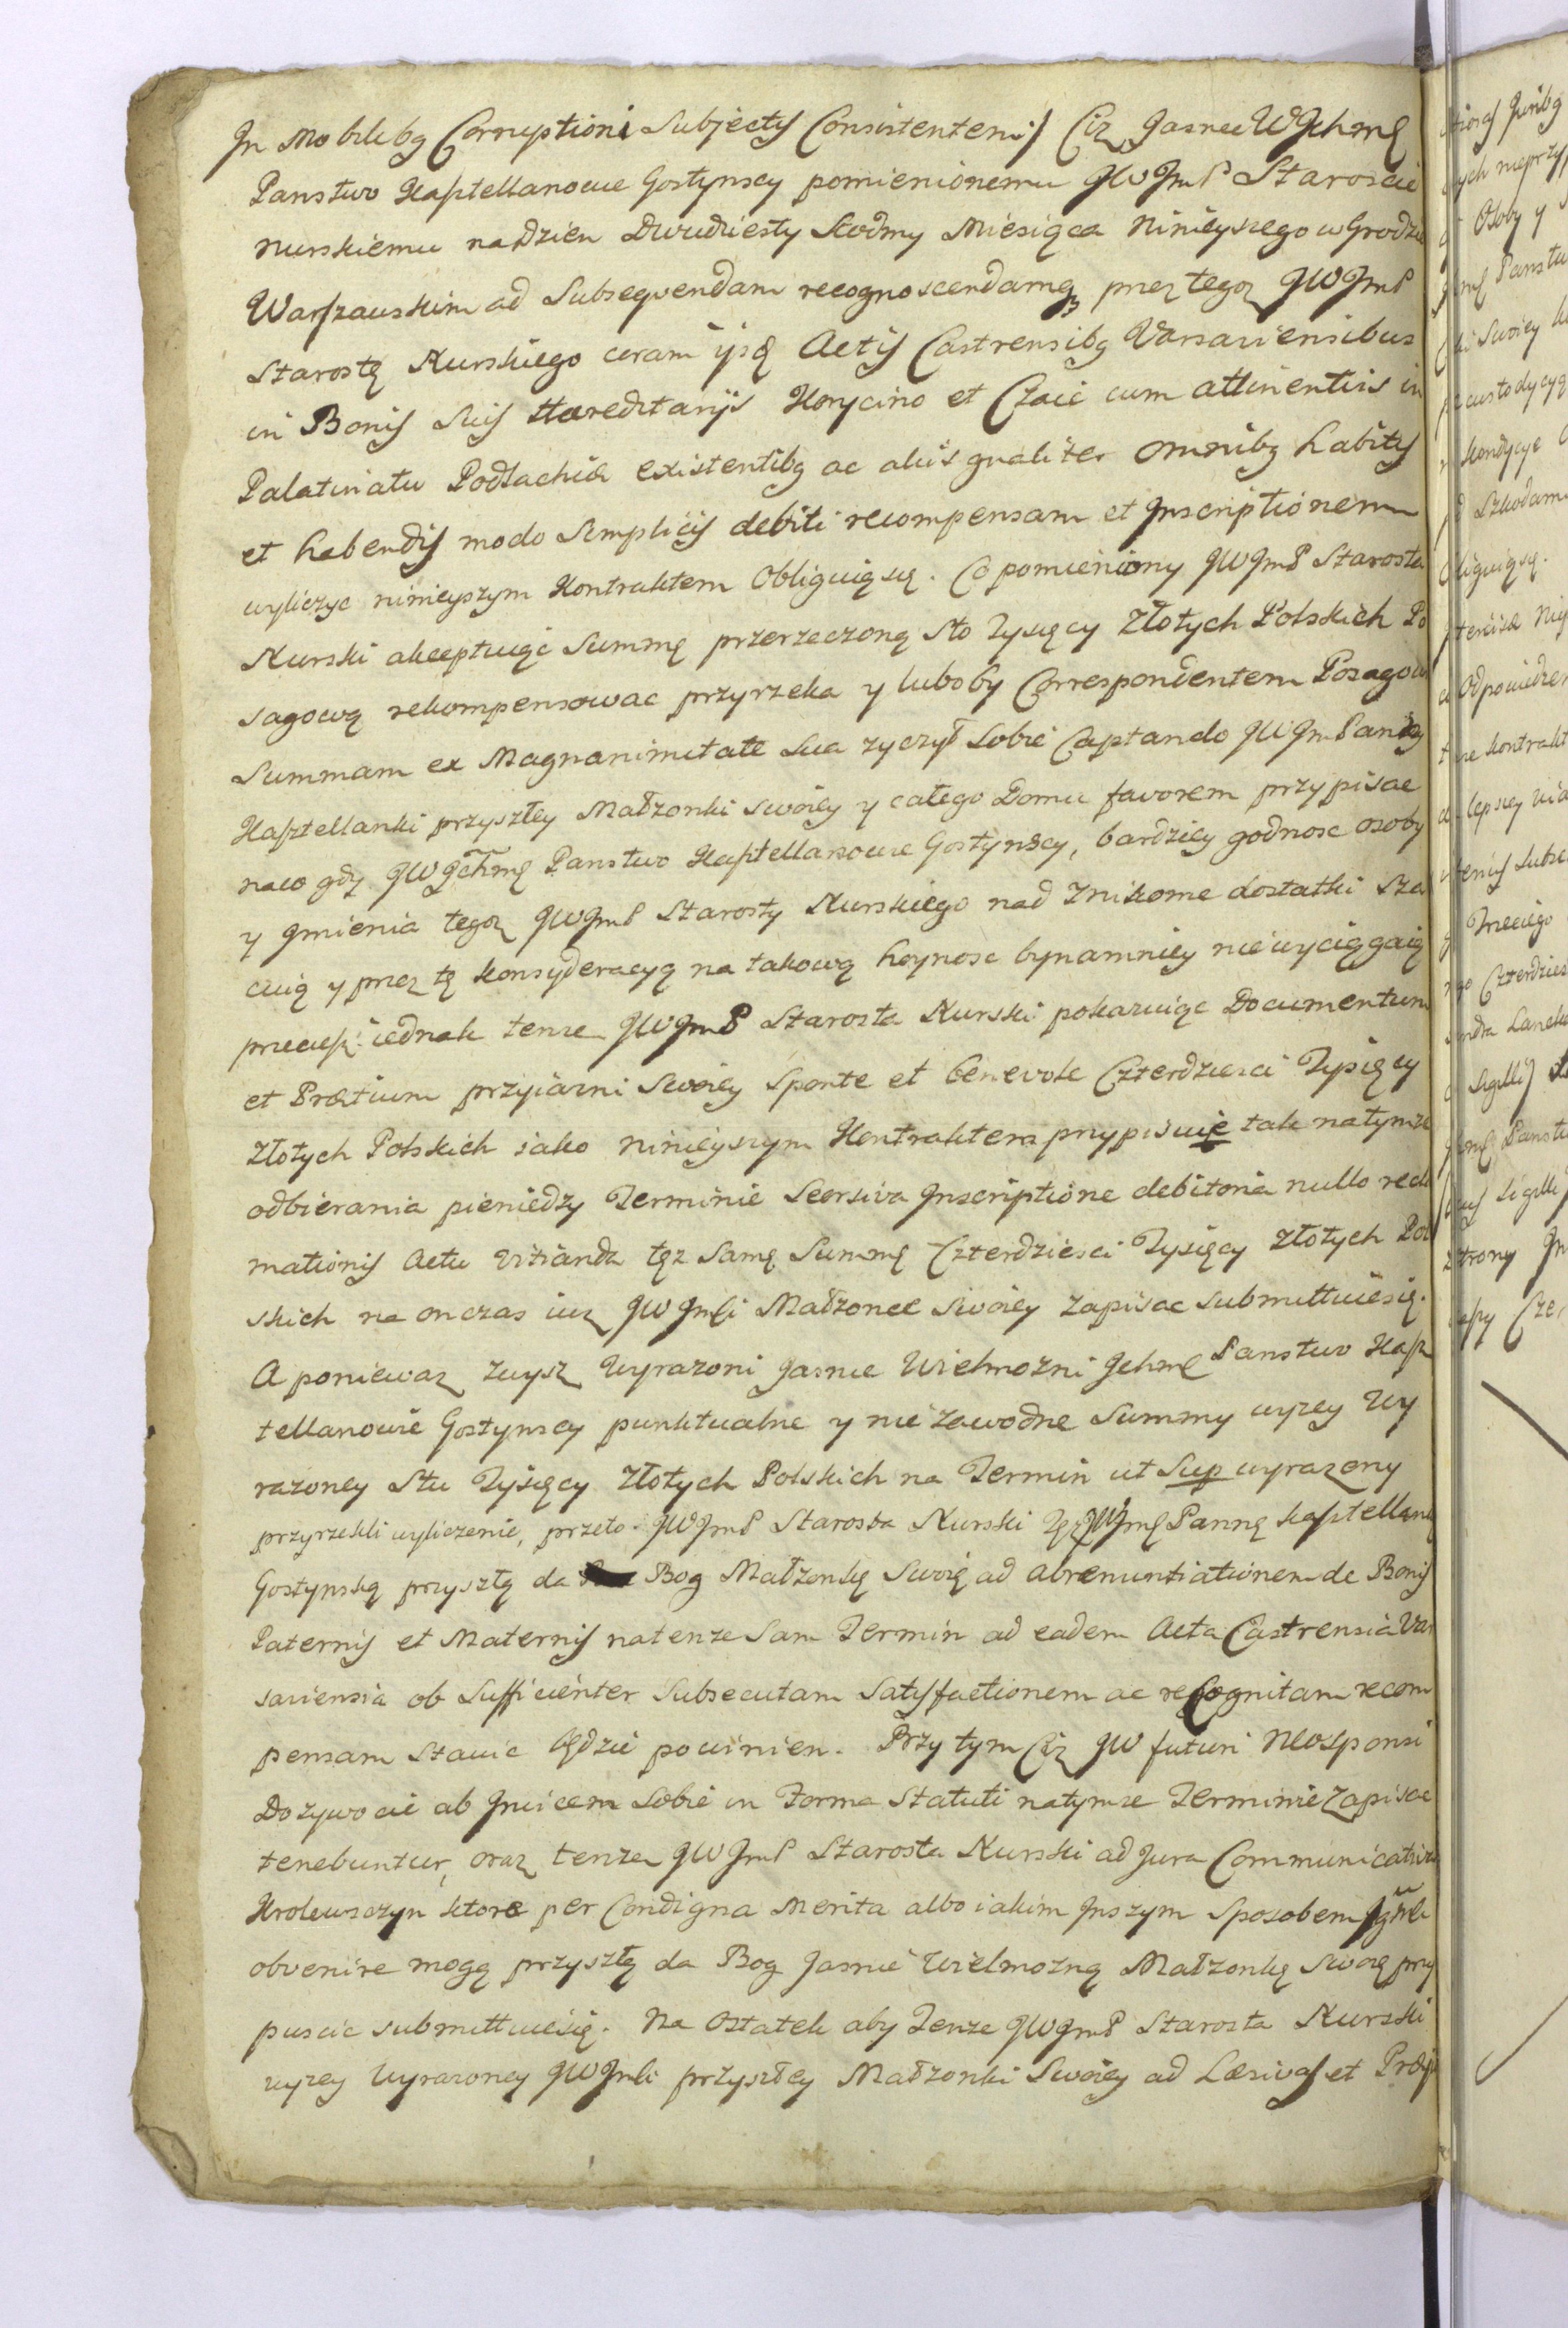 In Mobilibq Corruptioni Subjectis Consistentem) Ciż Jasnie WJchmę
Panstwo Kasztellanowie Gostynscy pomienionemu JWJmP Staroscie
Nurskiemu na dzien Dwudziesty Siodmy Miesiąca Ninieyszego w Grodzie
Warszawskim ad Subsequendam recognoscendamq przez tegoz JWJmP
Starostę Nurskiego coram ijsdę Actis Castrensibq Varsaviensibus
in Bonis Suis Haereditarijs Korycino et Czaie cum attinentiis in
Palatinatu Podlachiae existentibq ac aliis qualiter Omnibq habitis
et habendis modo Simplicis debiti recompensam et Inscriptionem
wyliczyc ninieyszym Kontraktem Obliguią się. Co pomieniony JWJmP Starosta
Nurski akceptuiąc Summę przerzeczoną Sto Tysięcy Złotych Polskich Po
sagową rekompensowac przyrzeka y luboby Correspondentem Posagow
Summam ex Magnanimitate Sua zyczył Sobie Captando JWJmPanny
Kasztellanki przyszłey Małzonki swoiey y całego Domu favorem przypisac
naco gdy JWJchmę Panstwo Kasztellanowie Gostynscy, bardziey godnosc osoby
y Imienia tegoz JWJmP Starosty Nurskiego nad Znikome dostatki Sza
cuią y przez tę konsyderacyą na takową hoynosc bynamniey nie wyciągaią
przeciesz iednak tenze JWJmP Starosta Nurski pokazuiąc Documentum
et Praetium przyiazni Swoiey Sponte et benevole Czterdziesci Tysięcy
Złotych Polskich iako ninieyszym Kontraktem przypisuie tak natymze
odbierania pieniedzy Terminie Seorsiva Inscriptione debitoria nullo recla
mationis Actu vitianda tęz Samę Summę Czterdziesci Tysięcy Złotych Pol
skich na onczas iuz JWJmśi Małzonce Swoiey Zapisac Submittuie się.
A poniewaz zwysz Wyrazoni Jasnie Wielmozni Jchmę Panstwo Kasz
tellanowie Gostynscy punktualne y niezawodne Summy wyzey Wy
razoney Stu Tysięcy Złotych Polskich na Termin ut Sup wyrazony
przyrzekli wyliczenie, przeto JWJmP Starosta Nurski Tęz JWJmę Pannę kasztellankę
Gostynską przyszłą da Bog Małzonkę Swoię ad abrenuntiationem de Bonis
Paternis et Maternis natenze Sam Termin ad eadem Acta Castrensia Var
saviensia ob Sufficienter Subsecutam Satisfactionem ac recognitam recom
pensam Stawic będzie powinien. Przy tym Ciz JW futuri Neosponsi
Dozywocie ab Invicem Sobie in Forma Statuti natymze Terminie Zapisac
tenebuntur, oraz tenze JWJmP Starosta Nurski ad Jura Communicativa
Krolewszczyn ktore per Condigna Merita albo iakim Inszym Sposobem
obvenire mogą przyszłą da Bog Jasnie Wielmozną Małzonkę Swoię przy
puscic submittuie się. Na Ostatek aby Tenze JWJmP Starosta Nurski
wyzey Wyrazoney JWJmśi przyszłey Małzonki Swoiey ad Laesivas et Praej